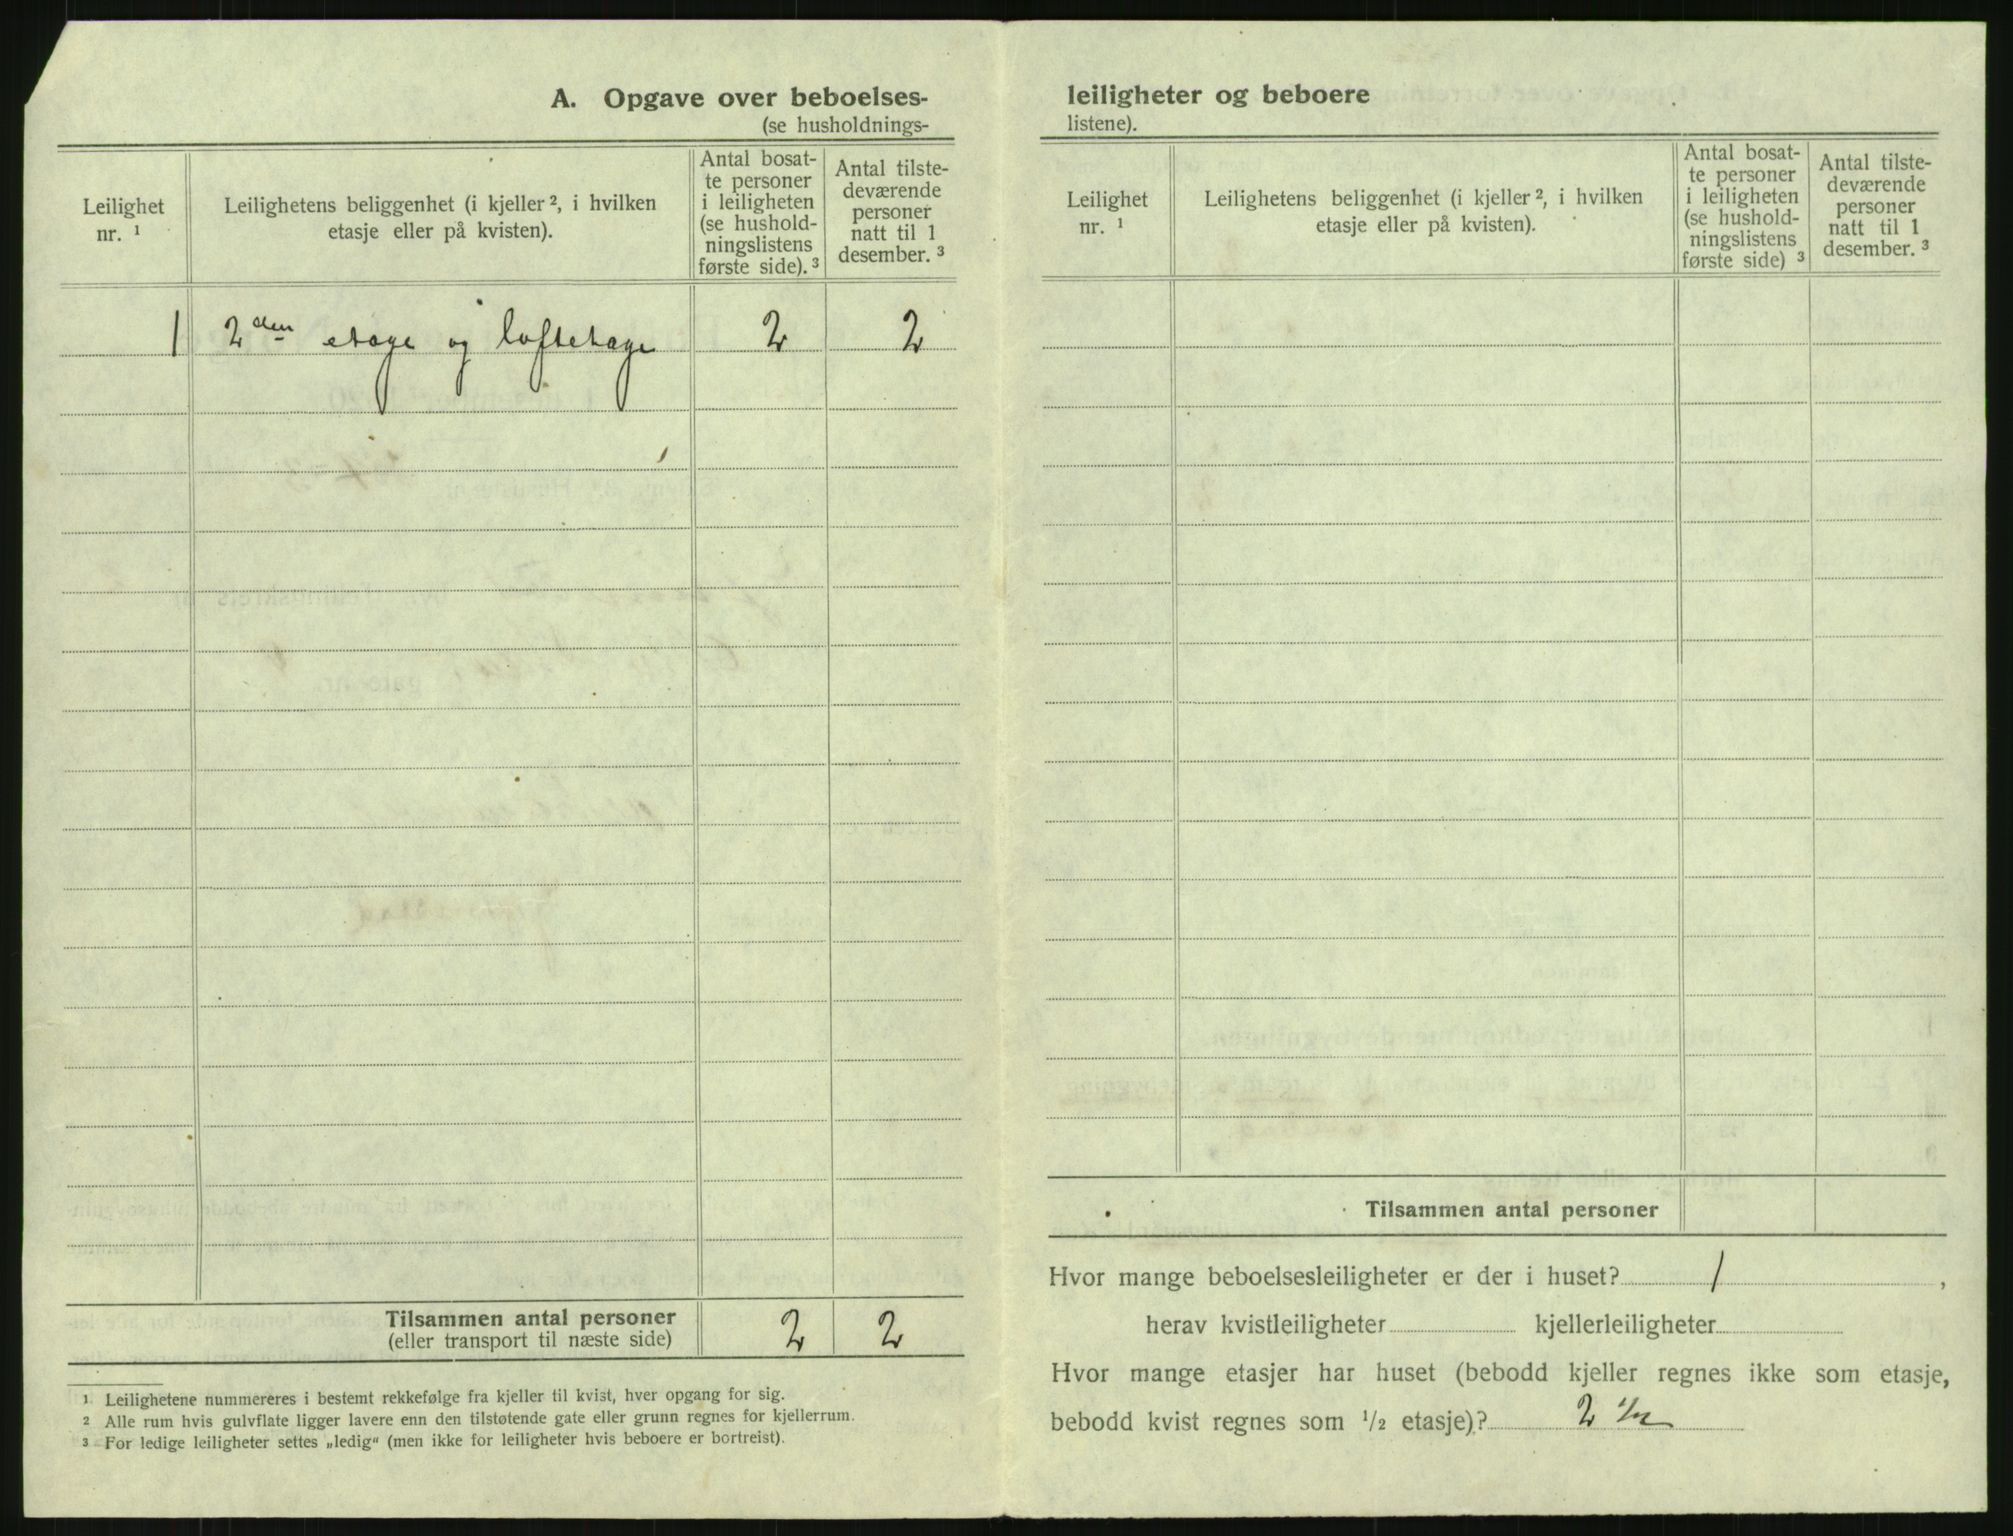 A. Opgave over beboelses-
(se husholdnings-
Leilighet
nr. ¹
Leilighetens beliggenhet (i kjeller ², i hvilken
etasje eller på kvisten).
Antal bosat-
te personer
i leiligheten
(se hushold-
ningslistens
første side). ³
Antal tilste-
deværende
personer
natt til 1
desember. ³
1 2den etage og loftetage 2 2
Tilsammen antal personer 2 2
(eller transport til næste side)
¹ Leilighetene nummereres i bestemt rekkefølge fra kjeller til kvist, hver opgang for sig.
² Alle rum hvis gulvflate ligger lavere enn den tilstøtende gate eller grunn regnes for kjellerrum.
³ For ledige leiligheter settes „ledig“ (men ikke for leiligheter hvis beboere er bortreist).
leiligheter og beboere
listene).
Leilighet
nr. ¹
Leilighetens beliggenhet (i kjeller ², i hvilken
etasje eller på kvisten).
Antal bosat-
te personer
i leiligheten
(se hushold-
ningslistens
første side) ³
Antal tilste-
deværende
personer
natt til 1
desember. ³
Tilsammen antal personer
Hvor mange beboelsesleiligheter er der i huset? 1 ,
herav kvistleiligheter kjellerleiligheter
Hvor mange etasjer har huset (bebodd kjeller regnes ikke som etasje,
bebodd kvist regnes som ½ etasje)? 2 ½